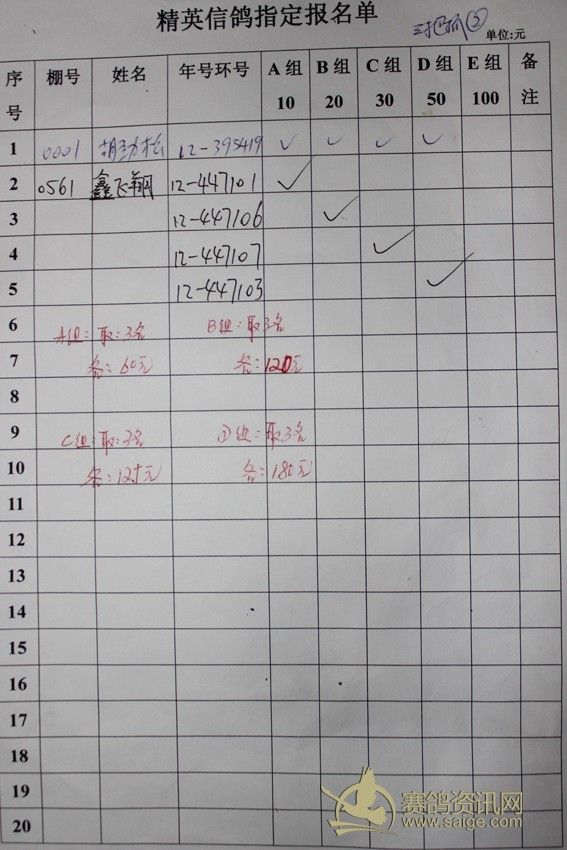 精英信鸽指定报名单
单位:元
序号 棚号 姓名 年号环号 A组 10 B组 20 C组 30 D组 50 E组 100 备注
1 0001 胡劲松 12-395419 ✓ ✓ ✓ ✓
2 0561 鑫飞翔 12-447101 ✓
3 12-447106 ✓
4 12-447107 ✓
5 12-447103 ✓
6 A组:取:3名 B组:取3名
7 各:60元 各:120元
8
9 C组:取:3名 D组:取3名
10 各:125元 各:180元
11
12
13
14
15
16
17
18
19
20
赛鸽资讯网
www.saige.com